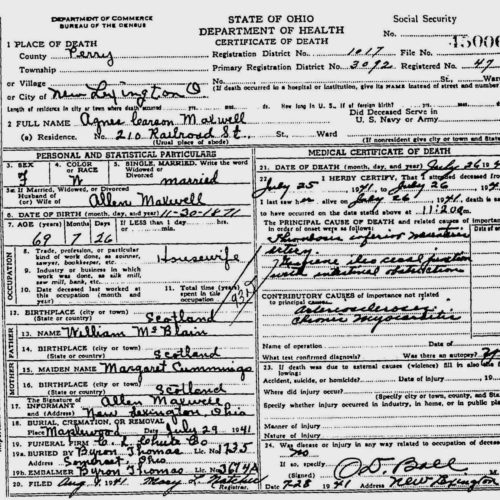 DEPARTMENT OF COMMERCE
BUREAU OF THE CENSUS
STATE OF OHIO
DEPARTMENT OF HEALTH
CERTIFICATE OF DEATH
Social Security
No.
1 PLACE OF DEATH
County Perry
Registration District No. 1017 File No. 45006
Township
Primary Registration District No. 3092 Registered No. 47
or Village
No. St., Ward
or City of New Lexington O
(If death occurred in a hospital or institution, give its NAME instead of street and number)
Length of residence in city or town where death occurred yrs. mos. ds. How long in U. S., if of foreign birth? yrs. mos. ds.
2 FULL NAME Agnes Carson Maxwell
Did Deceased Serve in
U. S. Navy or Army
(a) Residence. No. 210 Railroad St., Ward
(Usual place of abode) (If nonresident give city or town and State)
PERSONAL AND STATISTICAL PARTICULARS
3. SEX F
4. COLOR or RACE W
5. SINGLE, MARRIED, Widowed, or Divorced (write the word) married
5a. If Married, Widowed, or Divorced
Husband of
(or) Wife of Allen Maxwell
6. DATE OF BIRTH (month, day, and year) 11-30-1871
7. AGE Years Months Days If LESS than 1 day hrs. or min.
69 7 26
OCCUPATION
8. Trade, profession, or particular
kind of work done, as spinner,
sawyer, bookkeeper, etc. Housewife
9. Industry or business in which
work was done, as silk mill,
saw mill, bank, etc.
10. Date deceased last worked at
this occupation (month and
year)
11. Total time (years)
spent in this
occupation
12. BIRTHPLACE (city or town)
(State or country) Scotland
FATHER
13. NAME William McBlain
14. BIRTHPLACE (city or town)
(State or country) Scotland
MOTHER
15. MAIDEN NAME Margaret Cummings
16. BIRTHPLACE (city or town)
(State or country) Scotland
17. The Signature of
INFORMANT Allen Maxwell
and (Address) New Lexington Ohio
18. BURIAL, CREMATION, OR REMOVAL
Place Maplewood Date July 29 1941
19. FUNERAL FIRM
19a. BURIED BY Byron Thomas Lic. No.
(Address) Somerset, Ohio
19b. EMBALMER Byron Thomas Lic. No. 3674A
20. FILED Aug 1941 Mary L.
Registrar
MEDICAL CERTIFICATE OF DEATH
21. DATE OF DEATH (month, day, and year) July 26 194
22. I HEREBY CERTIFY, That I attended deceased from
July 25 1941, to July 26 1941
I last saw her alive on July 26 1941, death is
to have occurred on the date stated above at 11:20 a m.
The PRINCIPAL CAUSE OF DEATH and related causes of importance
in order of onset were as follows:
Thrombosis inferior mesenteric
artery
with intestinal obstruction
CONTRIBUTORY CAUSES of importance not related
to principal cause:
Arteriosclerosis
Chronic Myocarditis
Name of operation
What test confirmed diagnosis? Was there an autopsy?
23. If death was due to external causes (violence) fill in also the
Accident, suicide, or homicide? Date of injury
Where did injury occur?
(Specify city or town, county, and State)
Specify whether injury occurred in industry, in home, or in public
Manner of Injury
Nature of Injury
24. Was disease or injury in any way related to occupation of deceased?
no
If so, specify
(Signed) O D Ball
7-28 1941 New Lexington